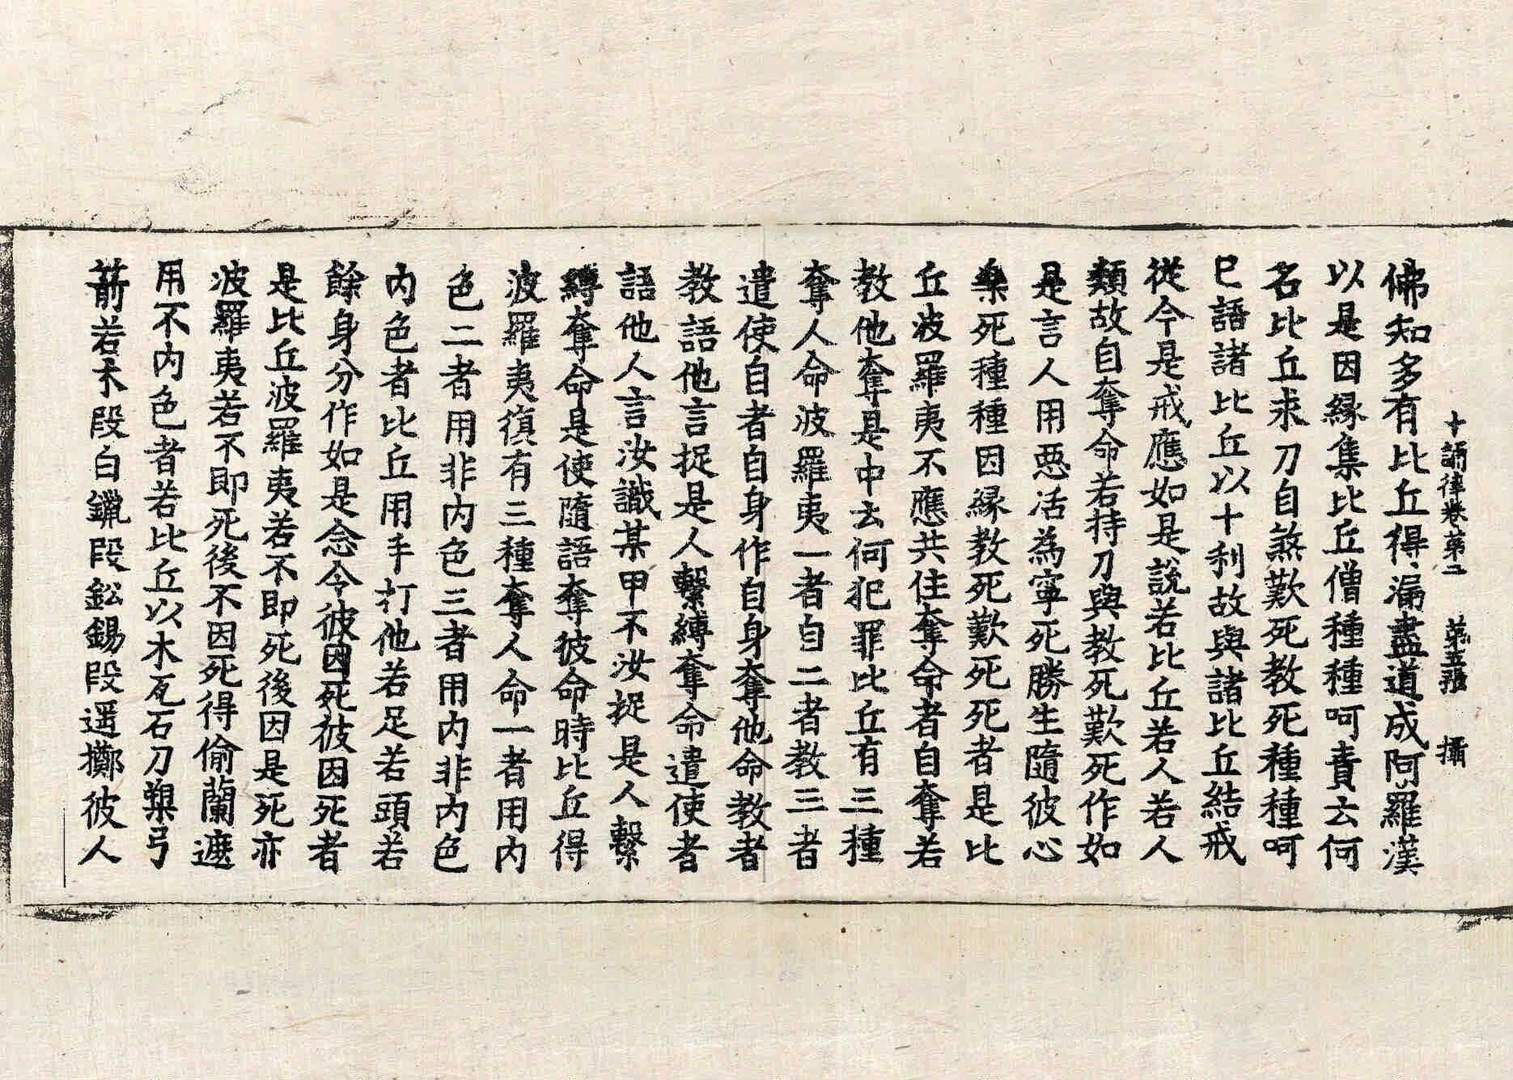 十誦律卷第二 第五張 攝
佛知多有比丘得漏盡道成阿羅漢
以是因緣集比丘僧種種呵責云何
名比丘求刀自煞歎死教死種種呵
已語諸比丘以十利故與諸比丘結戒
從今是戒應如是說若比丘若人若人
類故自奪命若持刀與教死歎死作如
是言人用惡活為寧死勝生隨彼心
樂死種種因緣教死歎死死者是比
丘波羅夷不應共住奪命者自奪若
教他奪是中云何犯罪比丘有三種
奪人命波羅夷一者自二者教三者
遣使自者自身作自身奪他命教者
教語他言捉是人繫縛奪命遣使者
語他人言汝識某甲不汝捉是人繫
縛奪命是使隨語奪彼命時比丘得
波羅夷復有三種奪人命一者用內
色二者用非內色三者用內非內色
內色者比丘用手打他若足若頭若
餘身分作如是念令彼因死彼因死者
是比丘波羅夷若不即死後因是死亦
波羅夷若不即死後不因死得偷蘭遮
用不內色者若比丘以木瓦石刀槊弓
箭若木段白鑞段鈆錫段遥擲彼人